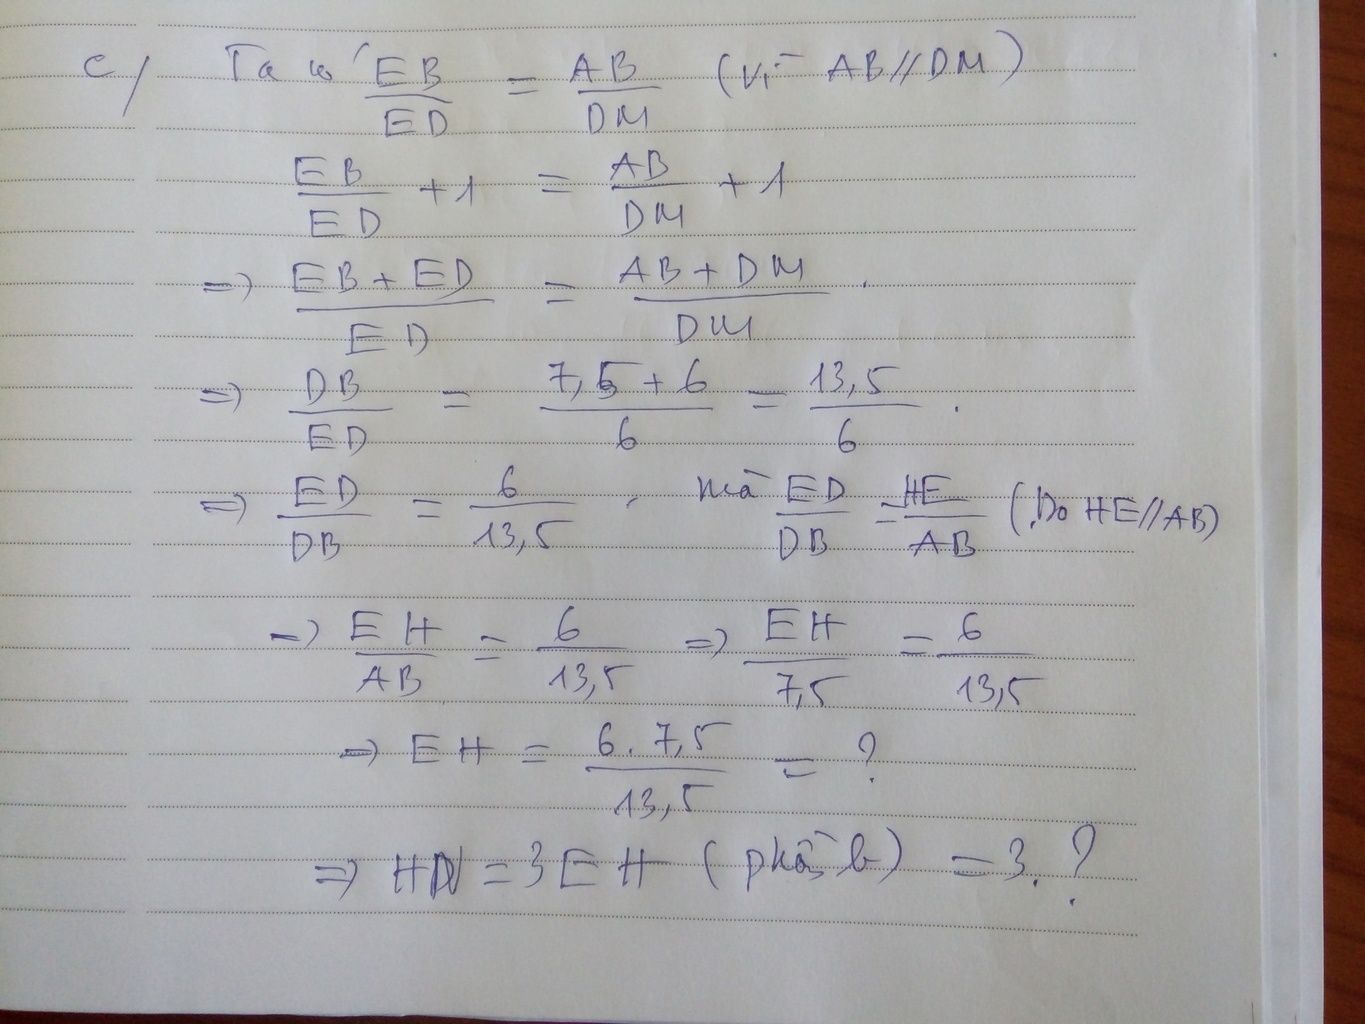 c/ Ta có EB/ED = AB/DM (Vì AB//DM)
EB/ED + 1 = AB/DM + 1
=> (EB + ED)/ED = (AB + DM)/DM .
=> DB/ED = (7,5 + 6)/6 = 13,5/6 .
=> ED/DB = 6/13,5 , mà ED/DB = HE/AB (Do HE//AB)
=> EH/AB = 6/13,5 => EH/7,5 = 6/13,5
=> EH = (6.7,5)/13,5 = ?
=> HN = 3EH (phần b) = 3.?